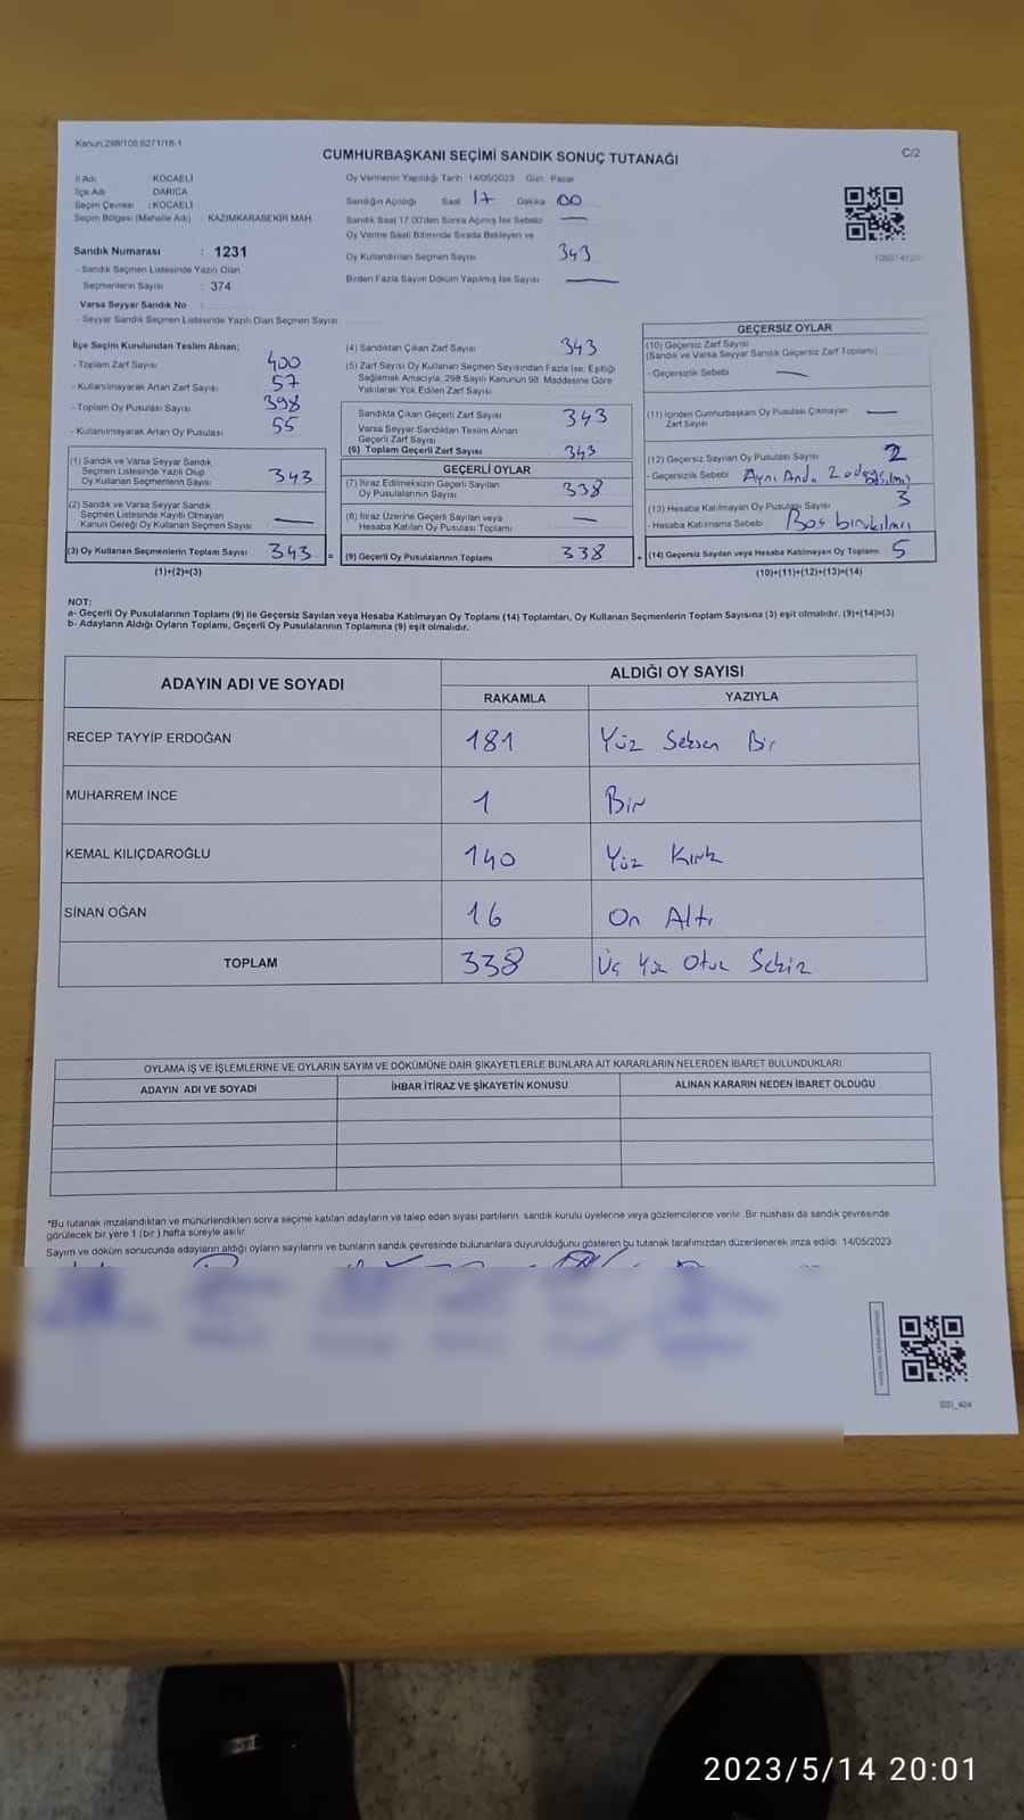 Kanun:298/105,6271/18-1
CUMHURBAŞKANI SEÇİMİ SANDIK SONUÇ TUTANAĞI
C/2
İl Adı : KOCAELİ
İlçe Adı : DARICA
Seçim Çevresi : KOCAELİ
Seçim Bölgesi (Mahalle Adı) : KAZIMKARABEKİR MAH.
Sandık Numarası : 1231
- Sandık Seçmen Listesinde Yazılı Olan
Seçmenlerin Sayısı : 374
Varsa Seyyar Sandık No :
- Seyyar Sandık Seçmen Listesinde Yazılı Olan Seçmen Sayısı :
Oy Vermenin Yapıldığı Tarih: 14/05/2023 Gün: Pazar
Sandığın Açıldığı Saat 17 Dakika 00
Sandık Saat 17.00'den Sonra Açılmış İse Sebebi —
Oy Verme Saati Bitiminde Sırada Bekleyen ve
Oy Kullandırılan Seçmen Sayısı 343
Birden Fazla Sayım Döküm Yapılmış İse Sayısı —
İlçe Seçim Kurulundan Teslim Alınan;
- Toplam Zarf Sayısı 400
- Kullanılmayarak Artan Zarf Sayısı 57
- Toplam Oy Pusulası Sayısı 398
- Kullanılmayarak Artan Oy Pusulası 55
(1) Sandık ve Varsa Seyyar Sandık
Seçmen Listesinde Yazılı Olup
Oy Kullanan Seçmenlerin Sayısı 343
(2) Sandık ve Varsa Seyyar Sandık
Seçmen Listesinde Kayıtlı Olmayan
Kanun Gereği Oy Kullanan Seçmen Sayısı —
(3) Oy Kullanan Seçmenlerin Toplam Sayısı 343 =
(1)+(2)=(3)
(4) Sandıktan Çıkan Zarf Sayısı 343
(5) Zarf Sayısı Oy Kullanan Seçmen Sayısından Fazla İse; Eşitliği
Sağlamak Amacıyla, 298 Sayılı Kanunun 98. Maddesine Göre
Yakılarak Yok Edilen Zarf Sayısı
Sandıkta Çıkan Geçerli Zarf Sayısı 343
Varsa Seyyar Sandıktan Teslim Alınan
Geçerli Zarf Sayısı
(6) Toplam Geçerli Zarf Sayısı 343
GEÇERLİ OYLAR
(7) İtiraz Edilmeksizin Geçerli Sayılan
Oy Pusulalarının Sayısı 338
(8) İtiraz Üzerine Geçerli Sayılan veya
Hesaba Katılan Oy Pusulası Toplamı —
(9) Geçerli Oy Pusulalarının Toplamı 338 +
GEÇERSİZ OYLAR
(10) Geçersiz Zarf Sayısı
(Sandık ve Varsa Seyyar Sandık Geçersiz Zarf Toplamı)
- Geçersizlik Sebebi —
(11) İçinden Cumhurbaşkanı Oy Pusulası Çıkmayan
Zarf Sayısı —
(12) Geçersiz Sayılan Oy Pusulası Sayısı 2
- Geçersizlik Sebebi Aynı Anda 2
(13) Hesaba Katılmayan Oy Pusulası Sayısı 3
- Hesaba Katılmama Sebebi Boş bırakılmış
(14) Geçersiz Sayılan veya Hesaba Katılmayan Oy Toplamı 5
(10)+(11)+(12)+(13)=(14)
NOT:
a- Geçerli Oy Pusulalarının Toplamı (9) ile Geçersiz Sayılan veya Hesaba Katılmayan Oy Toplamı (14) Toplamları, Oy Kullanan Seçmenlerin Toplam Sayısına (3) eşit olmalıdır. (9)+(14)=(3)
b- Adayların Aldığı Oyların Toplamı, Geçerli Oy Pusulalarının Toplamına (9) eşit olmalıdır.
ADAYIN ADI VE SOYADI
ALDIĞI OY SAYISI
RAKAMLA YAZIYLA
RECEP TAYYİP ERDOĞAN 181 Yüz Seksen Bir
MUHARREM İNCE 1 Bir
KEMAL KILIÇDAROĞLU 140 Yüz Kırk
SİNAN OĞAN 16 On Altı
TOPLAM 338 Üç Yüz Otuz Sekiz
OYLAMA İŞ VE İŞLEMLERİNE VE OYLARIN SAYIM VE DÖKÜMÜNE DAİR ŞİKAYETLERLE BUNLARA AİT KARARLARIN NELERDEN İBARET BULUNDUKLARI
ADAYIN ADI VE SOYADI İHBAR İTİRAZ VE ŞİKAYETİN KONUSU ALINAN KARARIN NEDEN İBARET OLDUĞU
*Bu tutanak imzalandıktan ve mühürlendikten sonra seçime katılan adayların ve talep eden siyasi partilerin, sandık kurulu üyelerine veya gözlemcilerine verilir. Bir nüshası da sandık çevresinde
görülecek bir yere 1 (bir) hafta süreyle asılır.
Sayım ve döküm sonucunda adayların aldığı oyların sayılarını ve bunların sandık çevresinde bulunanlara duyurulduğunu gösteren bu tutanak tarafımızdan düzenlenerek imza edildi. 14/05/2023
2023/5/14 20:01